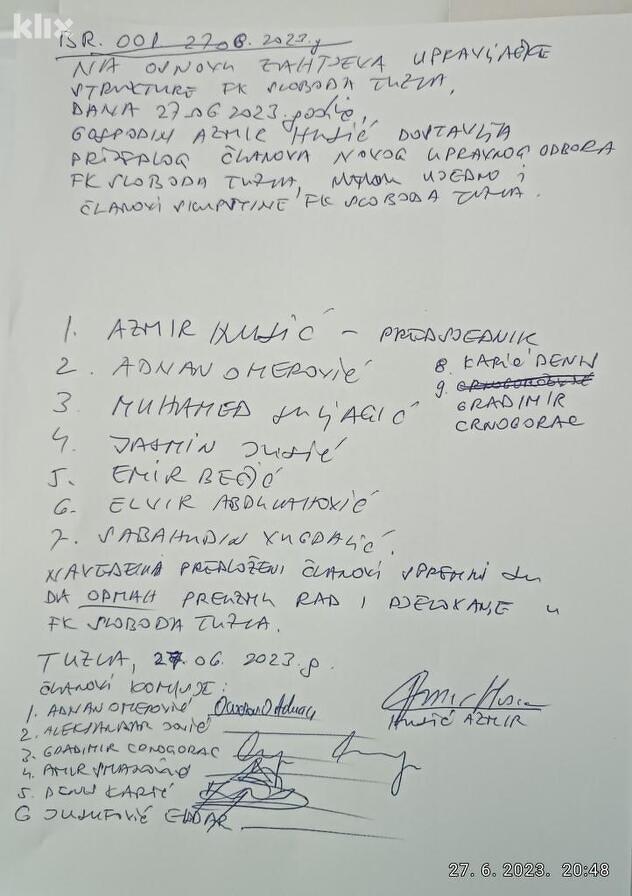 klix
BR. 001 27 06. 2023. g
NA OSNOVU ZAHTJEVA UPRAVLJAČKE
STRUKTURE FK SLOBODA TUZLA,
DANA 27 06 2023. godine,
GOSPODIN AZMIR HUSIĆ DOSTAVLJA
PRIJEDLOG ČLANOVA NOVOG UPRAVNOG ODBORA
FK SLOBODA TUZLA, UJEDNO I
ČLANOVI SKUPŠTINE FK SLOBODA TUZLA.
1. AZMIR HUSIĆ - PREDSJEDNIK
2. ADNAN OMEROVIĆ
3. MUHAMED SULJAGIĆ
4. JASMIN
5. EMIR BEĆIĆ
6. ELVIR ABDULAHOVIĆ
7. SABAHUDIN
8. KARIĆ DENIS
9.
GRADIMIR
CRNOGORAC
PREDLOŽENI ČLANOVI SPREMNI SU
DA ODMAH PREUZMU RAD I DJELOVANJE U
FK SLOBODA TUZLA.
TUZLA, 27.06. 2023. g.
ČLANOVI KOMISIJE:
1. ADNAN OMEROVIĆ
2. ALEKSANDAR
3. GRADIMIR CRNOGORAC
4. AMIR
5. DENIS KARIĆ
6 JUSUFOVIĆ ELDAR
HUSIĆ AZMIR
27. 6. 2023. 20:48